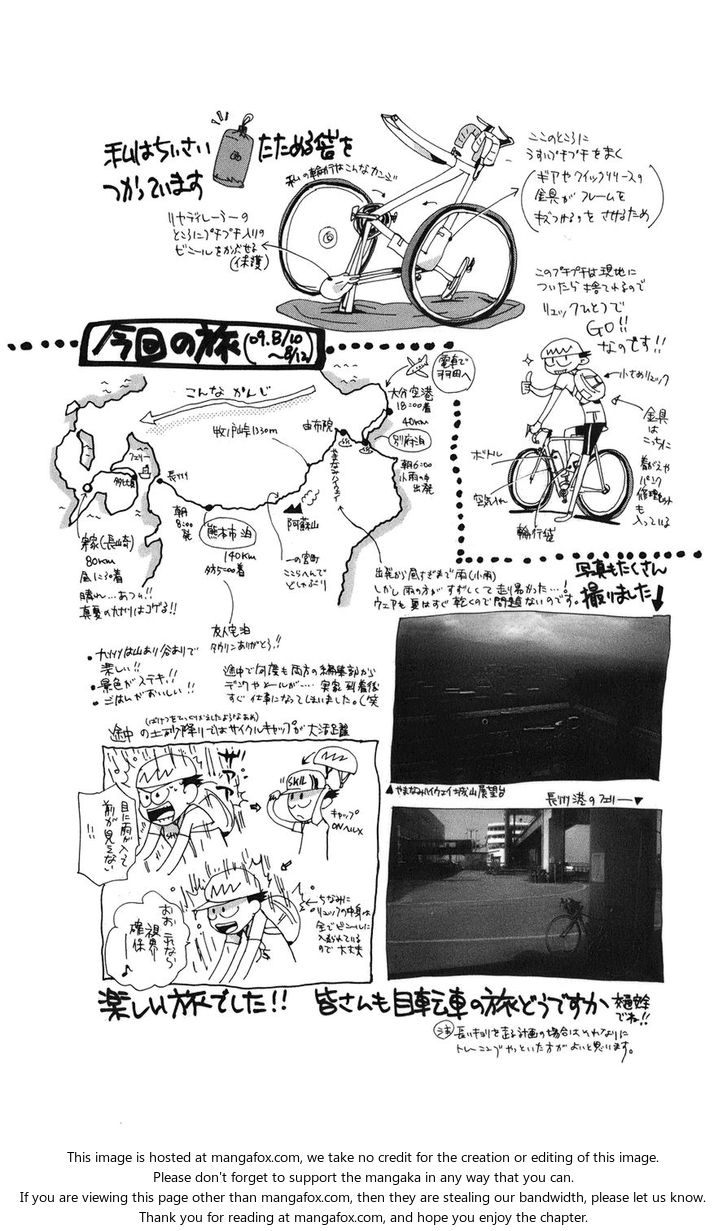 私はちいさい たためる袋を
つかっています
私の輪行はこんなカンジ
ここのところに
うすいプチプチをまく
(ギアやクイックリリースの
金具がフレームを
キズつけるのをさせるため)
リヤディレーラーの
ところにプチプチ入りの
ビニールをかぶせる
(保護)
このプチプチは現地に
ついたら捨てれるので
リュックひとつで
GO!!
なのです!!
今回の旅(09.8/10
〜8/12)
小さめリュック
金具
は
こっちに
着がえや
パンク
修理セット
も
入っている
ボトル
空気入れ
輪行袋
こんなかんじ
電車で
羽田へ
大分空港
18:00着
40km
別府泊
朝6:00
小雨の中
出発
由布院
やまなみハイウェイ
牧ノ戸峠1330m
阿蘇山
一の宮町
ここらへんで
どしゃぶり
熊本市泊
140km
夕方5:00着
朝
8:00
発
長洲
フェリー
多比良
実家(長崎)
80km
昼に30着
晴れ…あつい!!
真夏の九州はコゲる!!
出発から昼すぎまで雨(小雨)
しかし雨の方がすずしくて走り易かった…!
ウェアも夏はすぐ乾くので問題ないのです。
友人宅泊
タカリンありがとう!!
・九州は山あり谷ありで
楽しい!!
・景色がステキ!!
・ごはんがおいしい!!
途中で何度も両方の編集部から
デンワやメールが… 実家到着後
すぐ仕事になってしまいました。(笑
写真もたくさん
撮りました↓
(ばけつをひっくりかえしたようなあめ)
途中の土砂降りではサイクルキャップが大活躍
ザアアア
目に雨が入って
前が見えない
!!
SKIL
キャップ
ONヘルメ
おおこれなら
視界
確保♪
←ちなみに
リュックの中身は
全てビニールに
入れられている
ので大丈夫
▲やまなみハイウェイ 城山展望台
長洲港のフェリー▼
楽しい旅でした!! 皆さんも自転車の旅どうですか 交通安全
でね!!
注 長いキョリを走る計画の場合はそれなりに
トレーニングやっといた方がよいと思います。
This image is hosted at mangafox.com, we take no credit for the creation or editing of this image.
Please don't forget to support the mangaka in any way that you can.
If you are viewing this page other than mangafox.com, then they are stealing our bandwidth, please let us know.
Thank you for reading at mangafox.com, and hope you enjoy the chapter.